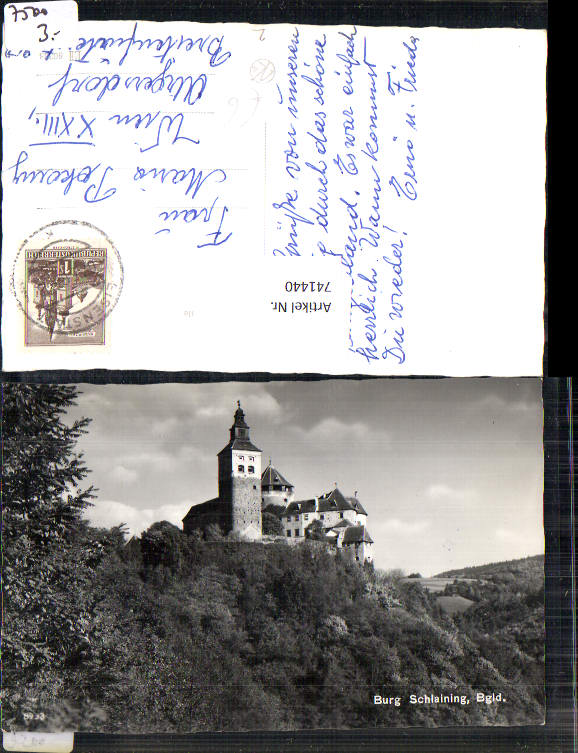 7500
3.-
Frau
Maria Pokorny
Wien XXIII.,
Atzgersdorf
Breitenfurte
Grüße von unseren
durch das schöne
land. Es war einfach
herrlich. Wann kommst
Du wieder! Erni u. Frieda
REPUBLIK ÖSTERREICH
1 S
Artikel Nr.
741440
Burg Schlaining, Bgld.